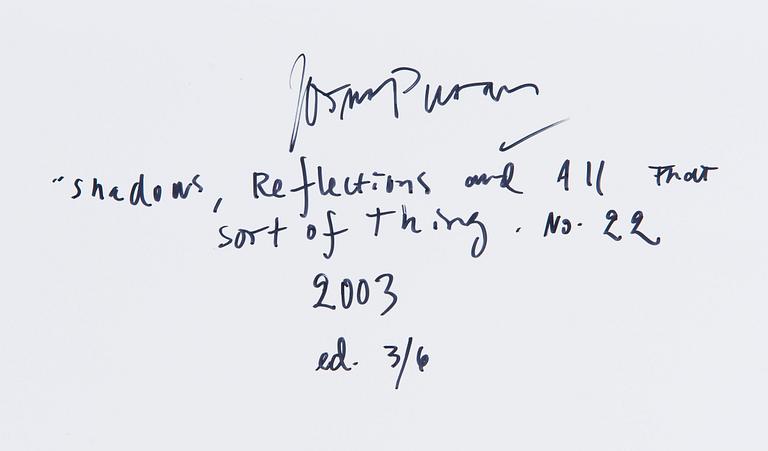 "shadows, Reflections and All That
sort of thing. No. 22
2003
ed. 3/6